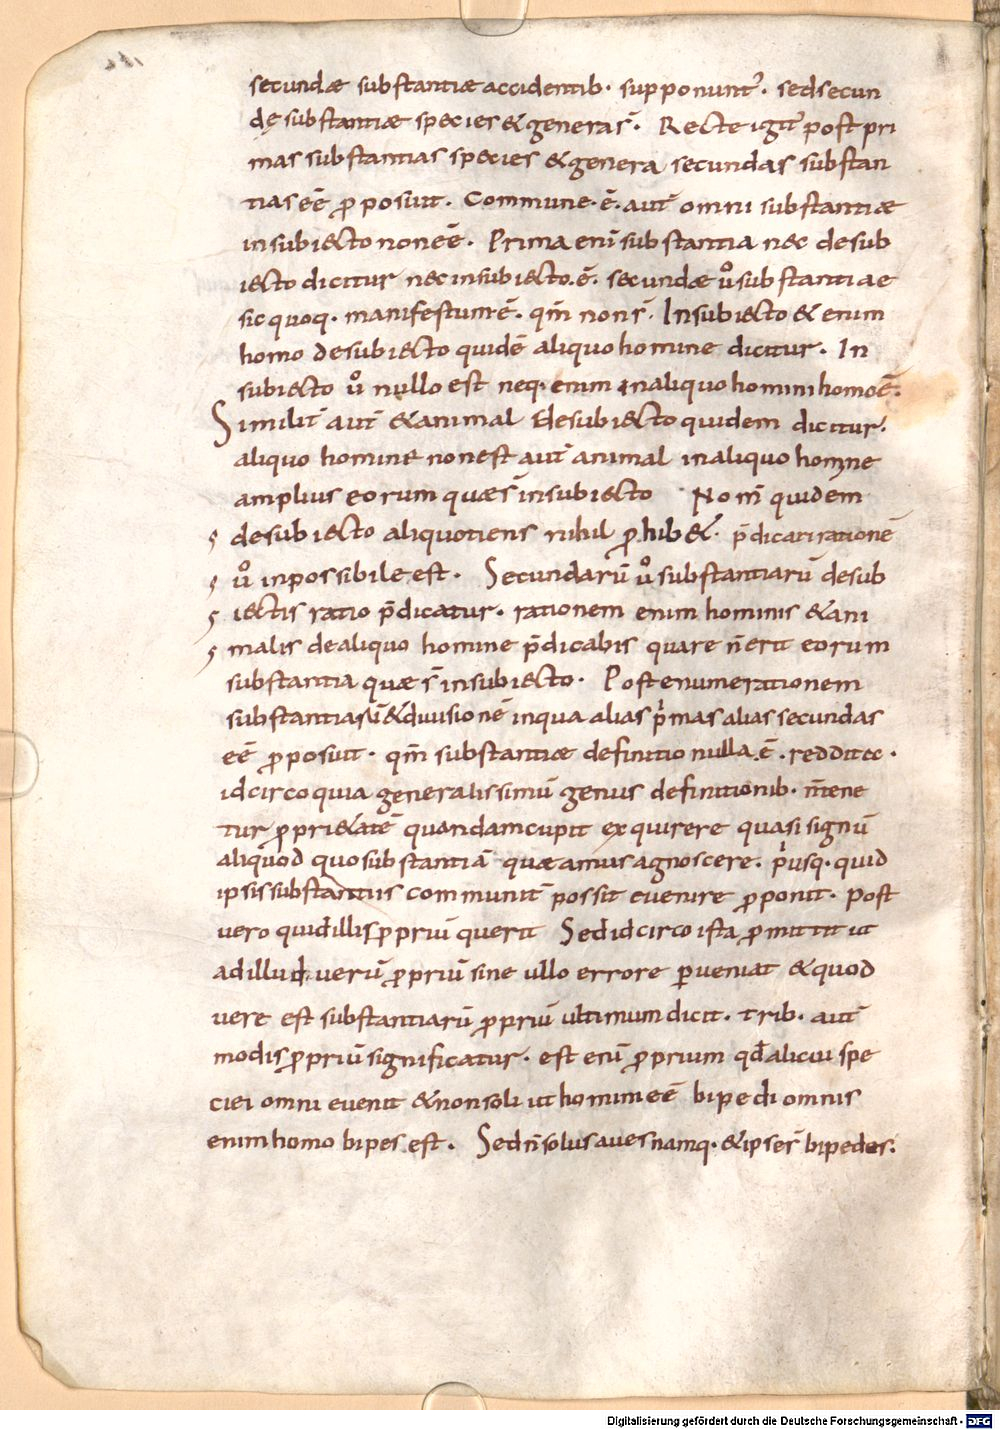 secundæ substantiæ accidentib· supponunt̃· sed secun
dę substantiæ species & genera s̄· Recte igit̃ post pri
mas substantias species & genera secundas substan
tias eē proposuit· Commune· ē· aut̃ omni substantiæ
in subiecto non eē· Prima enī substantia nec de sub
iecto dicitur nec in subiecto· ē· secundæ ůo substantiae
sic quoq· manifestum ē· qm̄ non s̄· In subiecto & enim
homo de subiecto quidē aliquo homine dicitur· In
subiecto ůo nullo est neq· enim in aliquo homini homo ē·
Similit̃ aut̃ & animal de subiecto quidem dicitur·
aliquo homine non est aut̃ animal in aliquo homine
amplius eorum quæ s̄ in subiecto Nom̄ quidem
de subiecto aliquotiens nihil prohib&· p̄dicari rationē
ůo inpossibile est· Secundarū ůo substantiarū de sub
iectis ratio p̄dicatur· rationem enim hominis & ani
malis de aliquo homine p̄dicabis quare ñ erit eorum
substantia quæ s̄ in subiecto· Post enumerationem
substantiasū & diuisionē in qua alias p̍mas alias secundas
eē proposuit· qm̄ substantiæ definitio nulla· ē· reddit ec·
idcirco quia generalissimū genus definitionib· ñ tene
tur propri&atē quandam cupit exquirere quasi signū
aliquod quo substantiā queamus agnoscere· p̍usq· quid
ipsis substantiis communit̃ possit euenire proponit· Post
uero quid illis propriū querit Sed idcirco ista promittit ut
ad illud uerū propriū sine ullo errore perueniat & quod
uere est substantiarū propriū ultimum dicit· Trib· aut̃
modis propriū significatur· est enī proprium qđ alicui spe
ciei omni euenit & non soli ut homini eē bipedi omnis
enim homo bipes est· Sed ñ solus aues namq· & ipse s̄ bipedes·
Digitalisierung gefördert durch die Deutsche Forschungsgemeinschaft · DFG